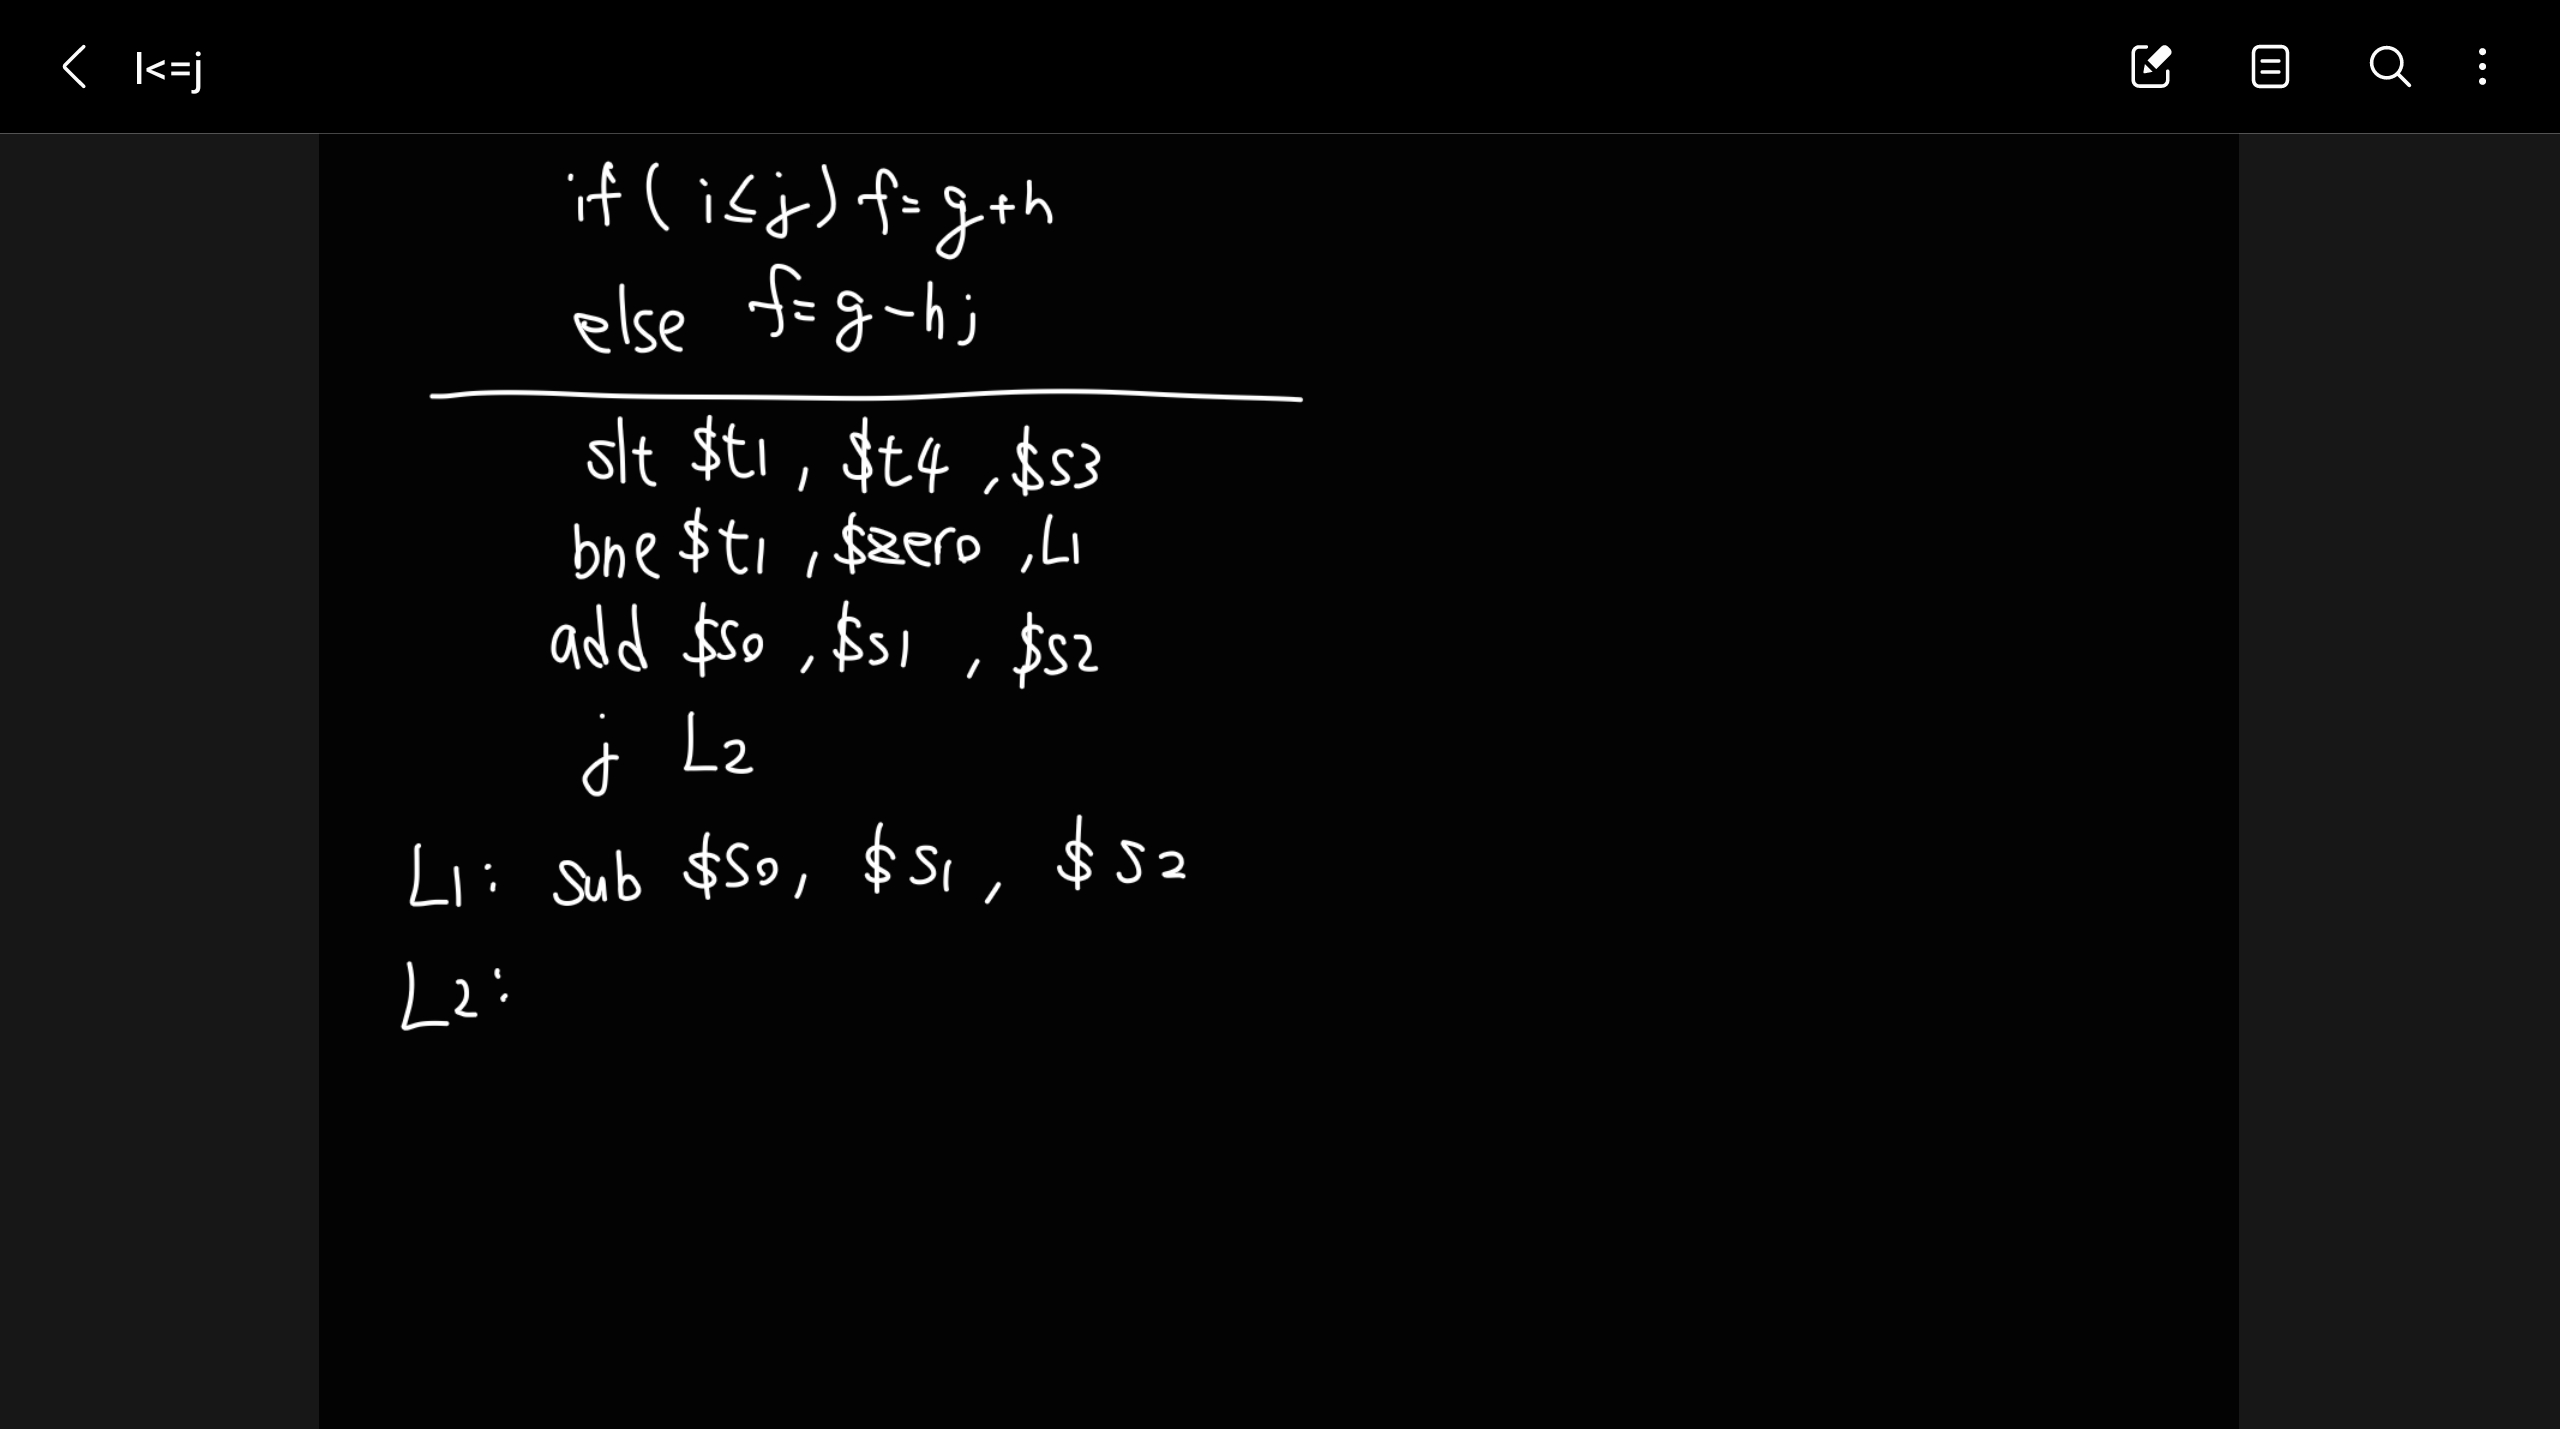 I<=j
if ( i≤j) f=g+h
else f=g-hj
slt $t1, $t4, $s3
bne $t1, $zero, L1
add $s0, $s1, $s2
j L2
L1: sub $s0, $s1, $s2
L2: